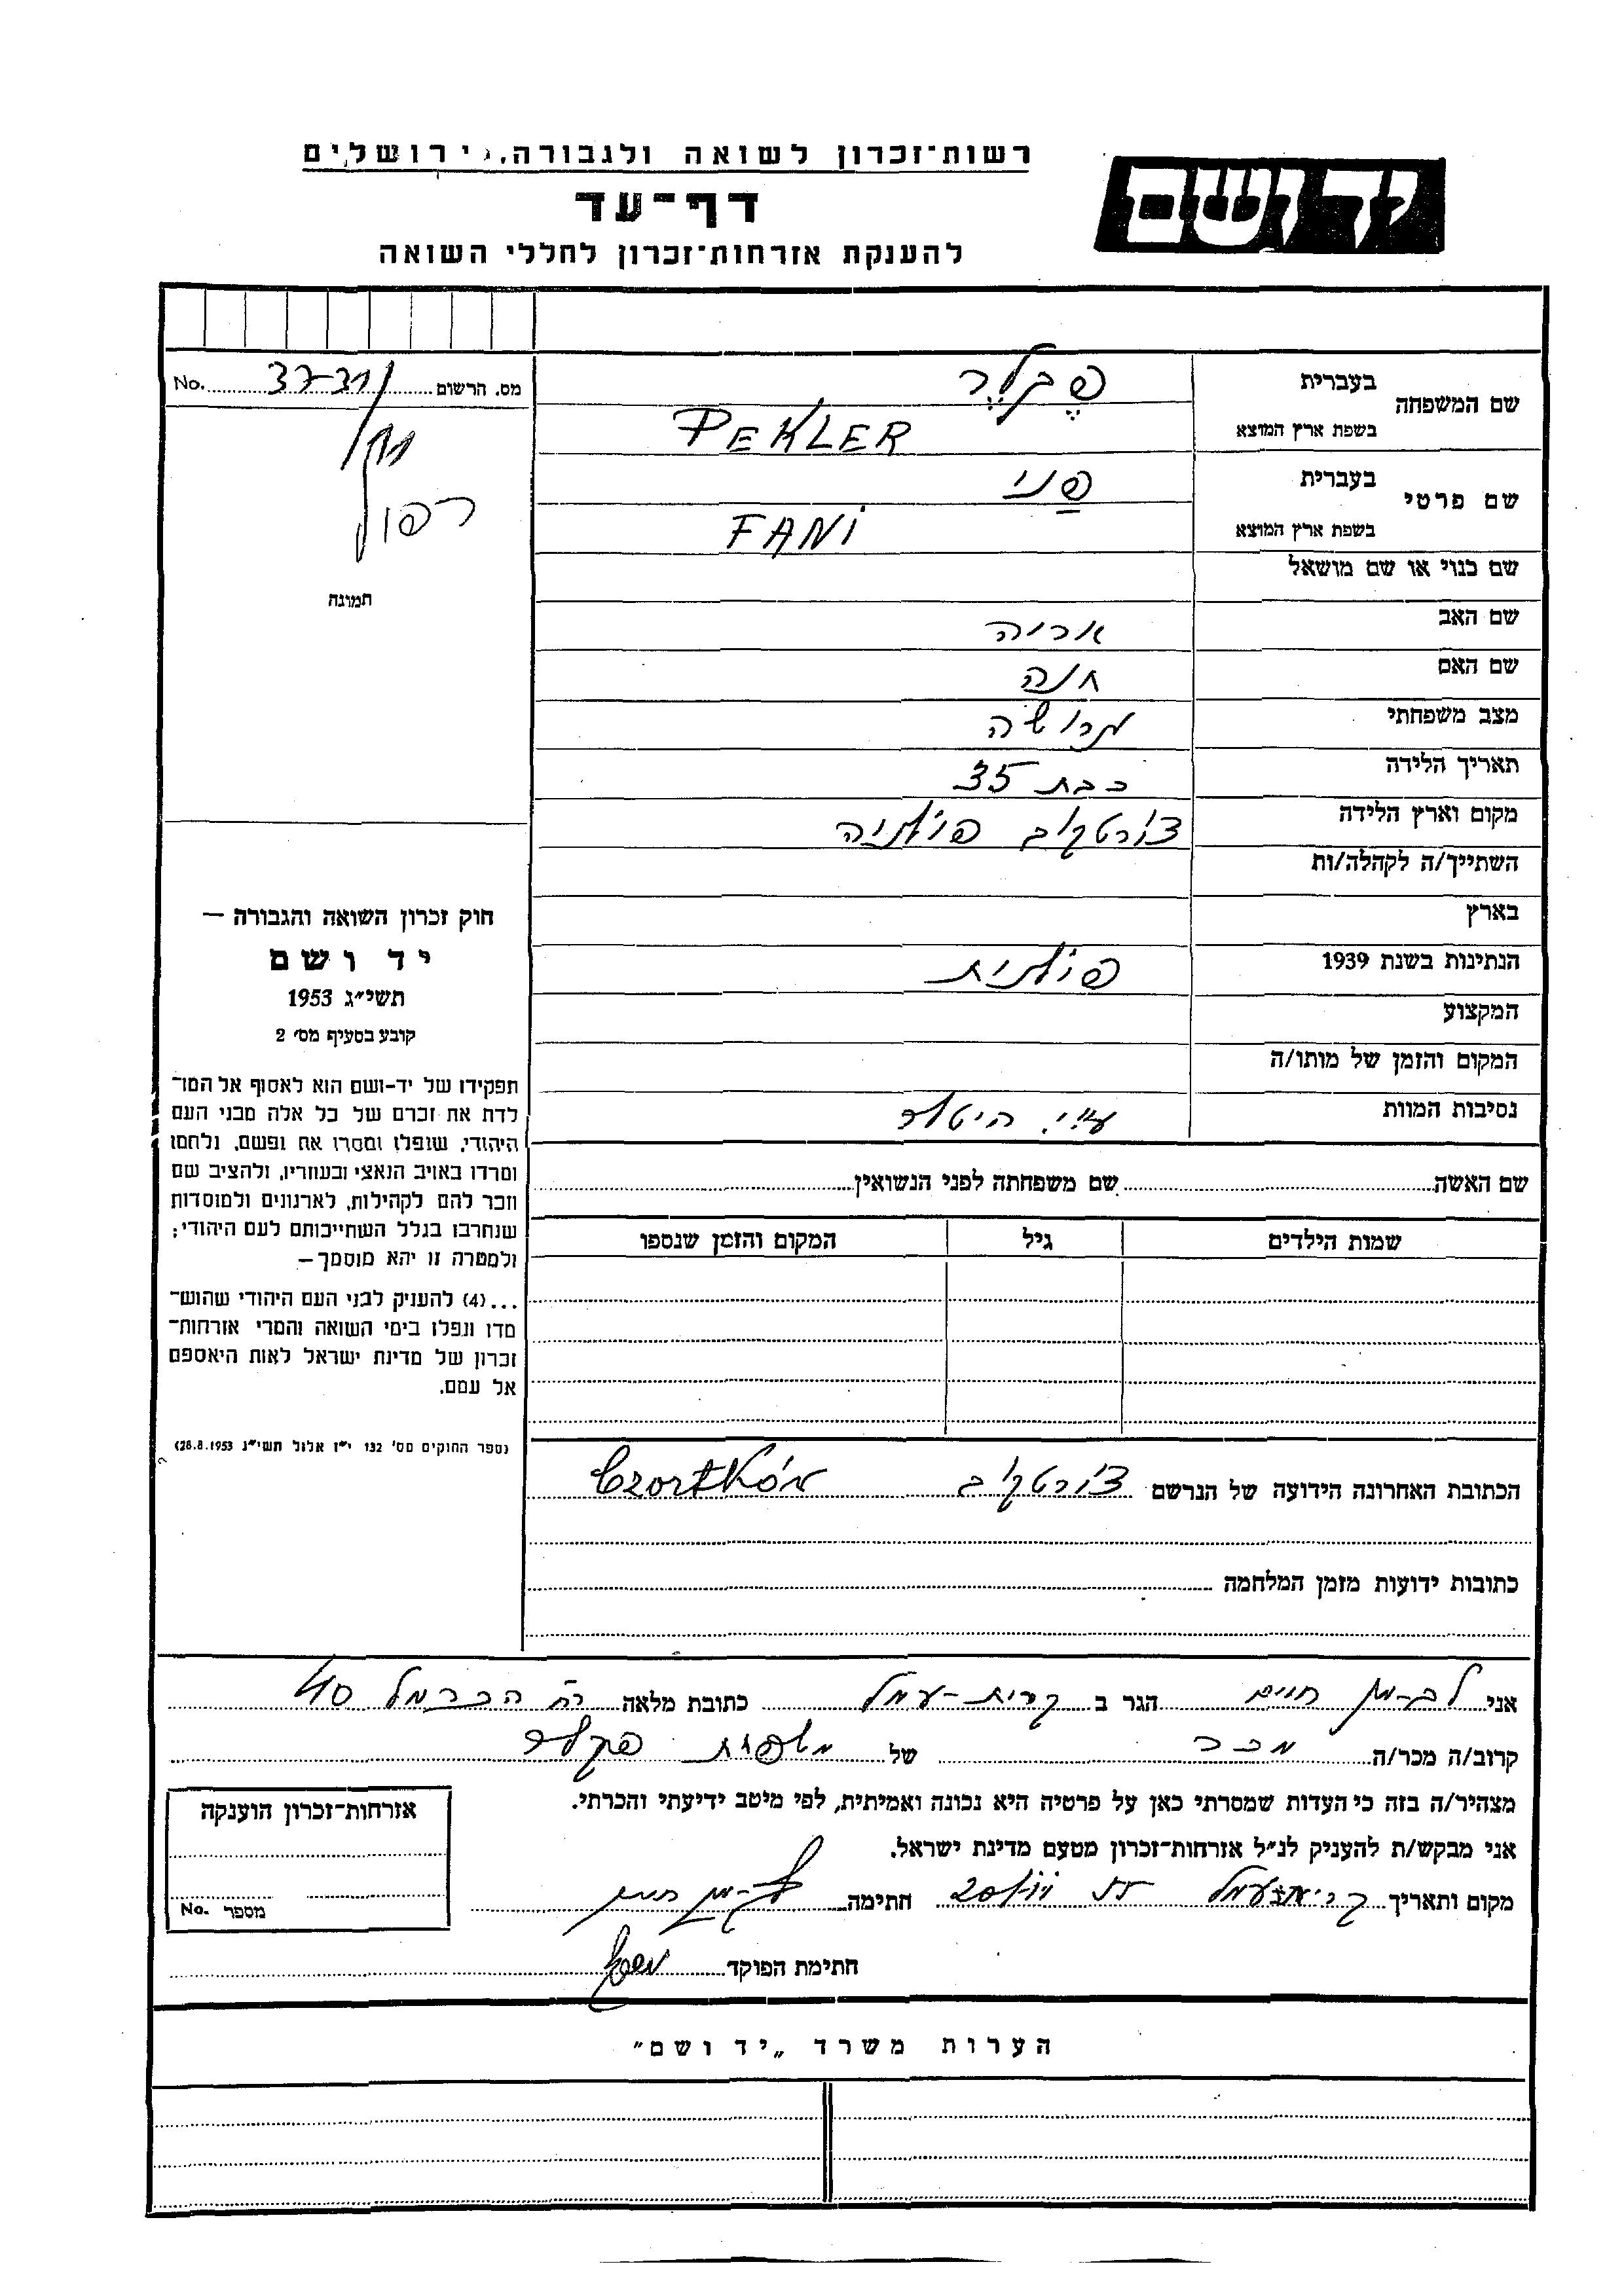 רשות־זכרון לשואה ולגבורה, ירושלים
יד ושם
דף־עד
להענקת אזרחות־זכרון לחללי השואה
מס. הרשום 37-31 No.
רפול
תמונה
שם המשפחה
בעברית פֶקְלֶר
בשפת ארץ המוצא PEKLER
שם פרטי
בעברית פַני
בשפת ארץ המוצא FANI
שם כנוי או שם מושאל
שם האב אריה
שם האם חנה
מצב משפחתי גרושה
תאריך הלידה כבת 35
מקום וארץ הלידה צ'ורטקוב פולניה
השתייך/ה לקהלה/ות
בארץ
הנתינות בשנת 1939 פולנית
המקצוע
המקום והזמן של מותו/ה
נסיבות המוות ע"י היטלר
שם האשה
שם משפחתה לפני הנשואין
שמות הילדים גיל המקום והזמן שנספו
חוק זכרון השואה והגבורה —
יד ושם
תשי״ג 1953
קובע בסעיף מס׳ 2
תפקידו של יד-ושם הוא לאסוף אל המו־
לדת את זכרם של כל אלה מבני העם
היהודי, שנפלו ומסרו את נפשם, נלחמו
ומרדו באויב הנאצי ובעוזריו, ולהציב שם
וזכר להם לקהילות, לארגונים ולמוסדות
שנחרבו בגלל השתייכותם לעם היהודי;
ולמטרה זו יהא מוסמך—
...(4) להעניק לבני העם היהודי שהוש־
מדו ונפלו בימי השואה והמרי אזרחות־
זכרון של מדינת ישראל לאות היאספם
אל עמם.
(ספר החוקים מס׳ 132 י״ז אלול תשי״ג 28.8.1953)
הכתובת האחרונה הידועה של הנרשם צ'ורטקוב Czortków
כתובות ידועות מזמן המלחמה
אני ליברמן חיים הגר ב קרית-עמל כתובת מלאה רח' הכרמל 40
קרוב/ה מכר/ה מכר של משפחת פקלר
מצהיר/ה בזה כי העדות שמסרתי כאן על פרטיה היא נכונה ואמיתית, לפי מיטב ידיעתי והכרתי.
אני מבקש/ת להעניק לנ״ל אזרחות־זכרון מטעם מדינת ישראל.
מקום ותאריך קרית עמל חתימה ליברמן חיים
חתימת הפוקד
אזרחות־זכרון הוענקה
מספר No.
הערות משרד „יד ושם״